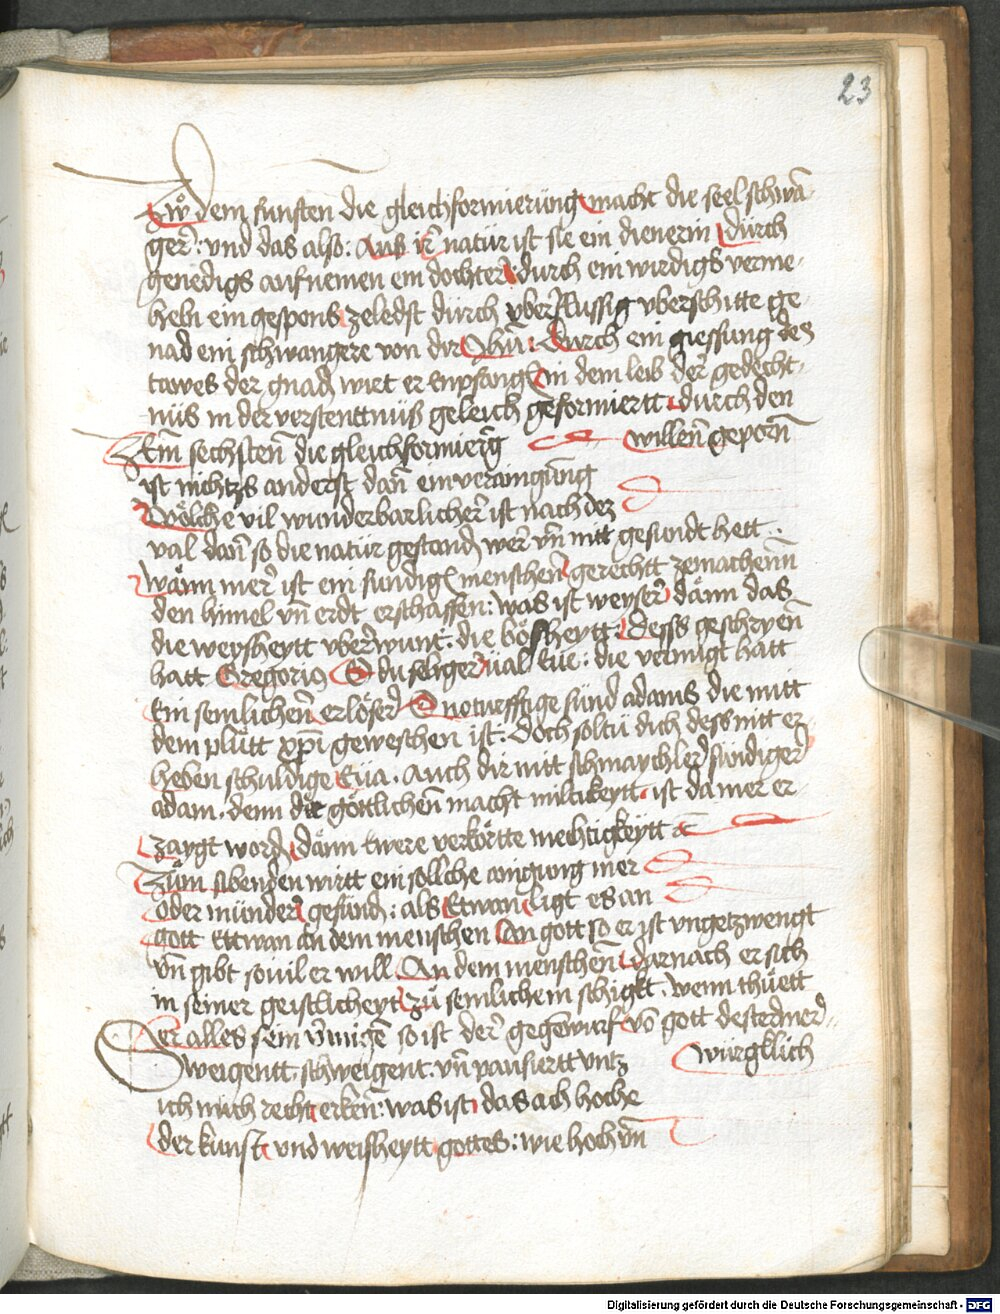 23
Zuͦ dem funften die gleichformierung macht die seel schwā-
ger: und das also: Aus ir natur ist sie ein dienerin durch
genedigs aufnemen ein dochter durch ein wirdigs verme-
heln ein gespons zeledst durch vberflussig vberschitte ge-
nad ein schwangere von durch ein giessung des
tawes der gnad wirt er enpfangen in dem leib der gedecht-
nus in der verstenttnuß geleich geformiertt durch den
willen geporn
Zem sechsten die gleichformierg
ist nichtzs anderst dan ein verainigung
Wölche vil wunderbarlicher ist nach dez
val dan so die natur gestand wer vn̄ nitt gesundt hett.
wann mer ist ein sundigen menschen gerechtt zemachenn
den himel vn̄ erdt erschaffen: was ist weyser dann das
die weysheytt vberwunt: die bösheytt: Desss geschryen
hatt Gregorius O du seliger val Eue: die verdigt hatt
Ein semlichen erlöser O notuefftige sund adams die mitt
dem plutt xp̄i geweschen ist: Doch soltu dich dess nitt er-
heben schuldige Eua. Auch dir nitt schmaychler sundiger
adam. denn die göttlichen macht miltikeytt ist da mer er-
zaygt word dann twere verkörtte mechtigkeytt
Zum sibenden wirtt ein sollche ainigung mer
oder münder gefund: als Ettwan ligt es an
gott Ettwan an dem menschen An gott so er ist vngetzwengt
vn̄ gibt souil er will An dem menschen darnach er sich
in seiner geistlicheyt zu semlichem schigkt. wenn thuett
er alles sein vmigen so ist der gegenwurf vō gott destermer
würgklich
Sweigentt schweigent: vn̄ pausiertt vntz
ich mich recht erken: was ist das ach hoche
der kunst und weisheytt gottes: wie hoch vn̄
Digitalisierung gefördert durch die Deutsche Forschungsgemeinschaft - DFG